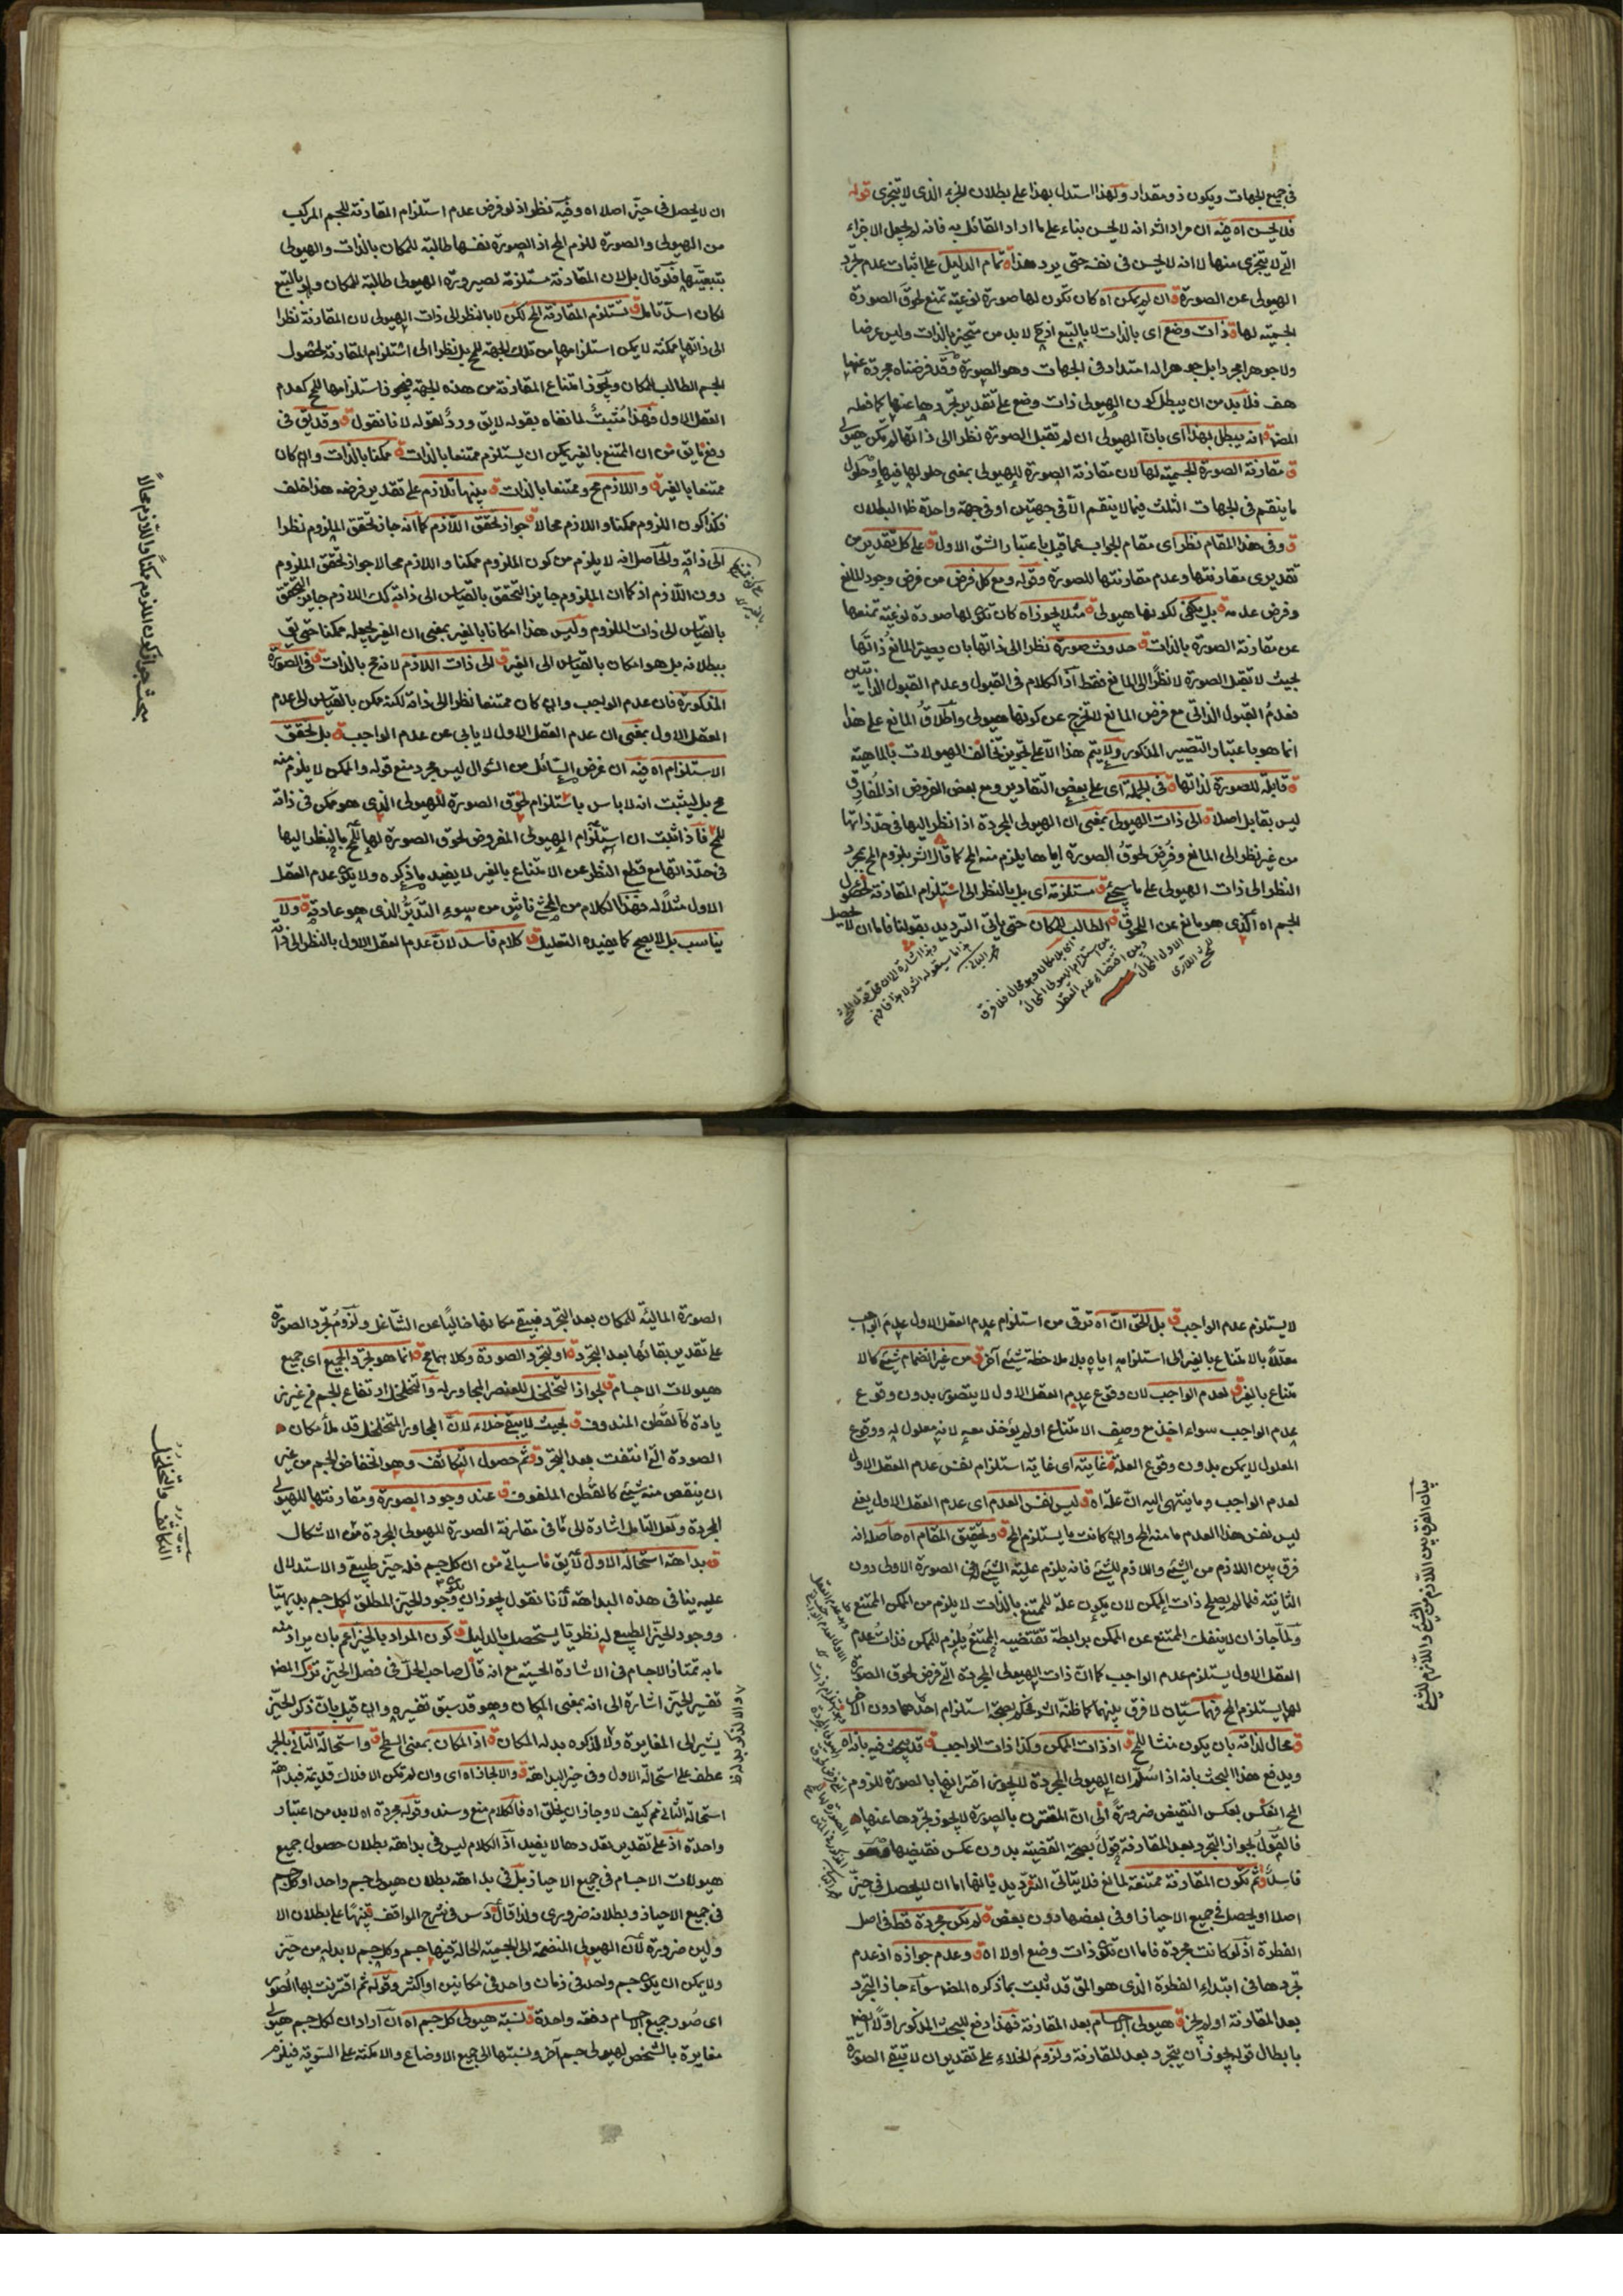 فى جميع الجهات ويكون ذو مقدار ولهذا استدل بهذا على بطلان الجزء الذى لا يتجزى قوله
فلا يحسن اه فيه ان مراد الشر انه لا يحسن بناء على ما اراد القائل به فانه لم يجعل الاجزاء
التى لا يتجزى منها لا انه لا يحسن فى نفسه حتى يرد هذا ق تمام الدليل على اثبات عدم تجرد
الهيولى عن الصورة ق ان لم يمكن اه كان تكون لها صورة نوعية تمنع لحوق الصورة
الجسمية لها ق ذات وضع اى بالذات لا بالتبع اذ ح لا بد من متحيز بالذات وليس عرضا
ولا جوهرا مجردا بل جوهر له امتداد فى الجهات وهو الصورة وقد فرضناه مجردة عنها
هف فلا بد من ان يبطل كون الهيولى ذات وضع على تقدير تجردها عنها كما فعله
المص ق انه يبطل بهذا اى بان الهيولى ان لم تقبل الصورة نظرا الى ذاتها لم يكن هيولى
ق مقارنة الصورة الجسمية لها لان مقارنة الصورة للهيولى بمعنى حلولها فيها وحلول
ما ينقسم فى الجهات الثلث فيما لا ينقسم الا فى جهتين او فى جهة واحدة ظ البطلان
ق وفى هذا المقام نظر اى مقام الجواب عما قيل باعتبار الشق الاول ق على كل تقدير من
تقديرى مقارنتها وعدم مقارنتها للصورة وقوله ومع كل فرض من فرض وجود المانع
وفرض عدمه ق بل يكفى لكونها هيولى ق مثلا يجوز اه كان تكون لها صورة نوعية تمنعها
عن مقارنة الصورة بالذات ق حدوث صورة نظرا الى ذاتها بان يصير المانع ذاتها
بحيث لا تقبل الصورة لا نظرا الى المانع فقط اذ الكلام فى القبول وعدم القبول الذاتيين
فعدم القبول الذاتى مع فرض المانع لا تخرج عن كونها هيولى واطلاق المانع على هذا
انما هو باعتبار التفسير المذكور ولا يتم هذا الا على تجويز تخالف الهيولات بالماهية
ق قابلة للصورة لذاتها ق فى الجملة اى على بعض التقادير ومع بعض الفروض اذ المفارق
ليس بقابل اصلا ق الى ذات الهيولى بمعنى ان الهيولى المجردة اذا نظر اليها فى حد ذاتها
من غير نظر الى المانع وفرض لحوق الصورة اياها يلزم منه المح كما قال الشر يلزم المح بمجرد
النظر الى ذات الهيولى على ما سيجئ ق مستلزمة اى بل بالنظر الى استلزام المقارنة لحصول
الجسم اه الذى هو مانع عن اللحوق ق الطالب للمكان حتى يأتى الترديد بقولنا فاما ان لا يحصل
ان لا يحصل فى حيز اصلا اه وفيه نظر اذ لو فرض عدم استلزام المقارنة للجسم المركب
من الهيولى والصورة للزم المح اذ الصورة نفسها طالبة للمكان بالذات والهيولى
بتبعيتها فلو قال بل لان المقارنة مستلزمة لصيرورة الهيولى طالبة للمكان ولو بالتبع
لكان اسد تامل ق تستلزم المقارنة المح لكن لا بالنظر الى ذات الهيولى لان المقارنة نظرا
الى ذاتها ممكنة لا يمكن استلزامها من تلك الجهة للمح بل نظرا الى استلزام المقارنة لحصول
الجسم الطالب للمكان ويجوز امتناع المقارنة من هذه الجهة فيجوز استلزامها للمح كعدم
العقل الاول فهذا مثبت لما نفاه بقوله لا يق ورد لقوله لانا نقول ق وقد يق فى
دفع ما يق من ان الممتنع بالغير يمكن ان يستلزم ممتنعا بالذات ق ممكنا بالذات وان كان
ممتنعا بالغير ق واللازم مح وممتنعا بالذات ق بينهما تلازم على تقدير فرضه هذا خلف
فكذا كون الملزوم ممكنا واللازم محالا ق جواز تحقق اللازم كما انه جاز تحقق الملزوم نظرا
الى ذاته والحاصل انه لا يلزم من كون الملزوم ممكنا واللازم محالا جواز تحقق الملزوم
دون اللازم اذ كما ان الملزوم جايز التحقق بالقياس الى ذاته كك اللازم جايز التحقق
بالقياس الى ذات الملزوم وليس هذا امكانا بالغير بمعنى ان الغير يجعله ممكنا حتى يق
ببطلانه بل هو امكان بالقياس الى الغير ق الى ذات اللازم لانه مح بالذات ق فى الصورة
المذكورة فان عدم الواجب وان كان ممتنعا نظرا الى ذاته لكنه ممكن بالقياس الى عدم
العقل الاول بمعنى ان عدم العقل الاول لا يابى عن عدم الواجب ق بل تحقق
الاستلزام اه فيه ان غرض السائل من السؤال ليس مجرد منع قوله والممكن لا يلزم منه
مح بل ليثبت انه لا باس باستلزام لحوق الصورة للهيولى الذى هو ممكن فى ذاته
للمح فاذا ثبت ان استلزام الهيولى المفروض لحوق الصورة لها للمح بالنظر اليها
فى حد ذاتها مع قطع النظر عن الامتناع بالغير لا يفيد ما ذكره ولا يكون عدم العقل
الاول مثلا له فهذا الكلام من المحشى ناش من سوء التدبر الذى هو عادته ق ولا
يناسب بل لا يصح كما يفيده التعليل ق كلام فاسد لان عدم العقل الاول بالنظر الى ذاته
مبحث جواز كون الملزوم ممكنا واللازم محالا
لا يستلزم عدم الواجب ق بل الحق ان اه ترقى من استلزام عدم العقل الاول عدم الواجب
معللا بالامتناع بالغير الى استلزامه اياه بلا ملاحظة شئ آخر ق من غير انضمام شئ كالا
متناع بالغير ق لعدم الواجب لان وقوع عدم العقل الاول لا يتصور بدون وقوع
عدم الواجب سواء اخذ مع وصف الامتناع او لم يؤخذ معه لانه معلول له ووقوع
المعلول لا يمكن بدون وقوع العلة ق غايته اى غاية استلزام نفس عدم العقل الاول
لعدم الواجب وما ينتهى اليه ان علة اه ق ليس نفس العدم اى عدم العقل الاول يعنى
ليس نفس هذا العدم ما منه المح وان كانت ما يستلزم المح ق وتحقيق المقام اه حاصله انه
فرق بين اللازم من الشئ واللازم للشئ فانه يلزم علية الشئ فى الصورة الاولى دون
الثانية فلما لم يصلح ذات الممكن لان يكون علة للممتنع بالذات لا يلزم من الممكن الممتنع
ولما جاز ان لا ينفك الممتنع عن الممكن برابطة تقتضيه الممتنع يلزم للممكن فذات عدم
العقل الاول يستلزم عدم الواجب كما ان ذات الهيولى المجردة التى فرض لحوق الصورة
لها يستلزم المح فهما سيان لا فرق بينهما كما ظنه الشر فحكم بصحة استلزام احدهما دون الاخر
ق محال لذاته بان يكون منشأ للمح ق اذ ذات الممكن وكذا ذات الواجب ق قد يبحث فيه بانه اه
ويدفع هذا البحث بانه اذا استلزم ان الهيولى المجردة لا يجوز اقترانها بالصورة للزوم
المح انعكس بعكس النقيض ضرورة الى ان المقترن بالصورة لا يجوز تجردها عنها
فالقول بجواز التجرد بعد المقارنة قول بصحة القضية بدون عكس نقيضها وهو
فاسد ق ثم تكون المقارنة ممتنعة لمانع فلا يتاتى الترديد بانها اما ان لا يحصل فى حيز
اصلا او يحصل فى جميع الاحياز او فى بعضها دون بعض ق لم يكن مجردة قط فى اصل
الفطرة اذ لو كانت مجردة فاما ان تكون ذات وضع او لا اه ق وعدم جوازه اذ عدم
تجردها فى ابتداء الفطرة الذى هو المق قد ثبت بما ذكره المص سواء جاز التجرد
بعد المقارنة او لم يجز ق هيولى الاجسام بعد المقارنة فهذا دفع للبحث المذكور اولا
بابطال قوله يجوز ان يتجرد بعد المقارنة ولزوم الخلاء على تقدير ان لا تبقى الصورة
بيان الفرق بين اللازم من الشئ واللازم للشئ
الصورة المالئة للمكان بعد التجرد فيبقى مكانها خاليا عن الشاغل ولزوم تجرد الصورة
على تقدير بقائها بعد التجرد ق او لتجرد الصورة وكلاهما مح ق انما هو تجرد الجميع اى جميع
هيولات الاجسام ق لجواز التخلخل للعنصر المجاور له والتخلخل ارتفاع الجسم من غير ز
يادة كالقطن المندوف ق بحيث لا يبقى خلاء لان المجاور المتخلخل قد ملأ مكان
الصورة التى انتفت بعد التجرد ق ثم حصول التكاثف وهو انخفاض الجسم من غير
ان ينقص منه شئ كالقطن الملفوف ق عند وجود الصورة ومقارنتها للهيولى
المجردة ولعل التامل اشارة الى ما فى مقارنة الصورة للهيولى المجردة من الاشكال
ق بداهة استحالة الاول لا يق ما سياتى من ان كل جسم فله حيز طبيعى والاستدلال
عليه ينافى هذه البداهة لانا نقول يجوز ان يكون وجود الحيز المطلق لكل جسم بديهيا
ووجود الحيز الطبيعى له نظريا يستحصل بالدليل ق كون المراد بالحيز اعم بان يراد منه
ما به تمتاز الاجسام فى الاشارة الحسية مع انه قال صاحب الحل فى فصل الحيز ترك المص
تفسير الحيز اشارة الى انه بمعنى المكان وهو قد سبق تفسيره وان قيل بان ذكر الحيز
يشير الى المغايرة ولا لذكره بدله المكان ق اذ المكان بمعنى السطح ق واستحالة الثانى بالجر
عطف على استحالة الاول وفى حيز البداهة ق والا لجاز اه اى وان لم تكن الافلاك قديمة فبداهة
استحالة الثانى مم كيف لا وجاز ان يخلق اه فالكلام منع وسند وقوله مجردة اه لا بد من اعتبار
واحدة اذ على تقدير تعددها لا يفيد اذ الكلام ليس فى بداهة بطلان حصول جميع
هيولات الاجسام فى جميع الاحياز بل فى بداهة بطلان هيولى جسم واحد او كل جسم
فى جميع الاحياز وبطلانه ضرورى ولذا قال قدس فى شرح المواقف تنبيها على بطلان الا
ولين ضرورة لان الهيولى المنضمة الى الجسمية الحالة فيها جسم وكل جسم لا بد له من حيز
ولا يمكن ان يكون جسم واحد فى زمان واحد فى مكانين او اكثر وقوله ثم اقترنت بها الصور
اى صور جميع الاجسام دفعة واحدة ق نسبة هيولى كل جسم اه ان اراد ان لكل جسم هيولى
مغايرة بالشخص لهيولى جسم آخر ونسبتها الى جميع الاوضاع والامكنة على السوية فيلزم
التكاثف والتخلخل